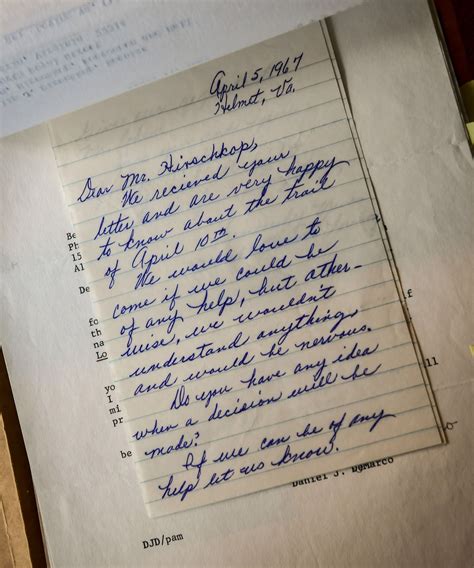 April 5, 1967
Helmet, Va.
Dear Mr. Hirschkop,
We recieved your
letter and are very happy
to know about the trail
of April 10th.
We would love to
come if we could be
of any help, but other-
wise, we wouldn't
understand anything,
and would be nervous.
Do you have any idea
when a decision will be
made?
If we can be of any
help let us know.
Be
Ph
15
Al
De
fo
th
na
Lo
yo
I
mi
pr
be
f
11
Daniel J. DeMarco
DJD/pam